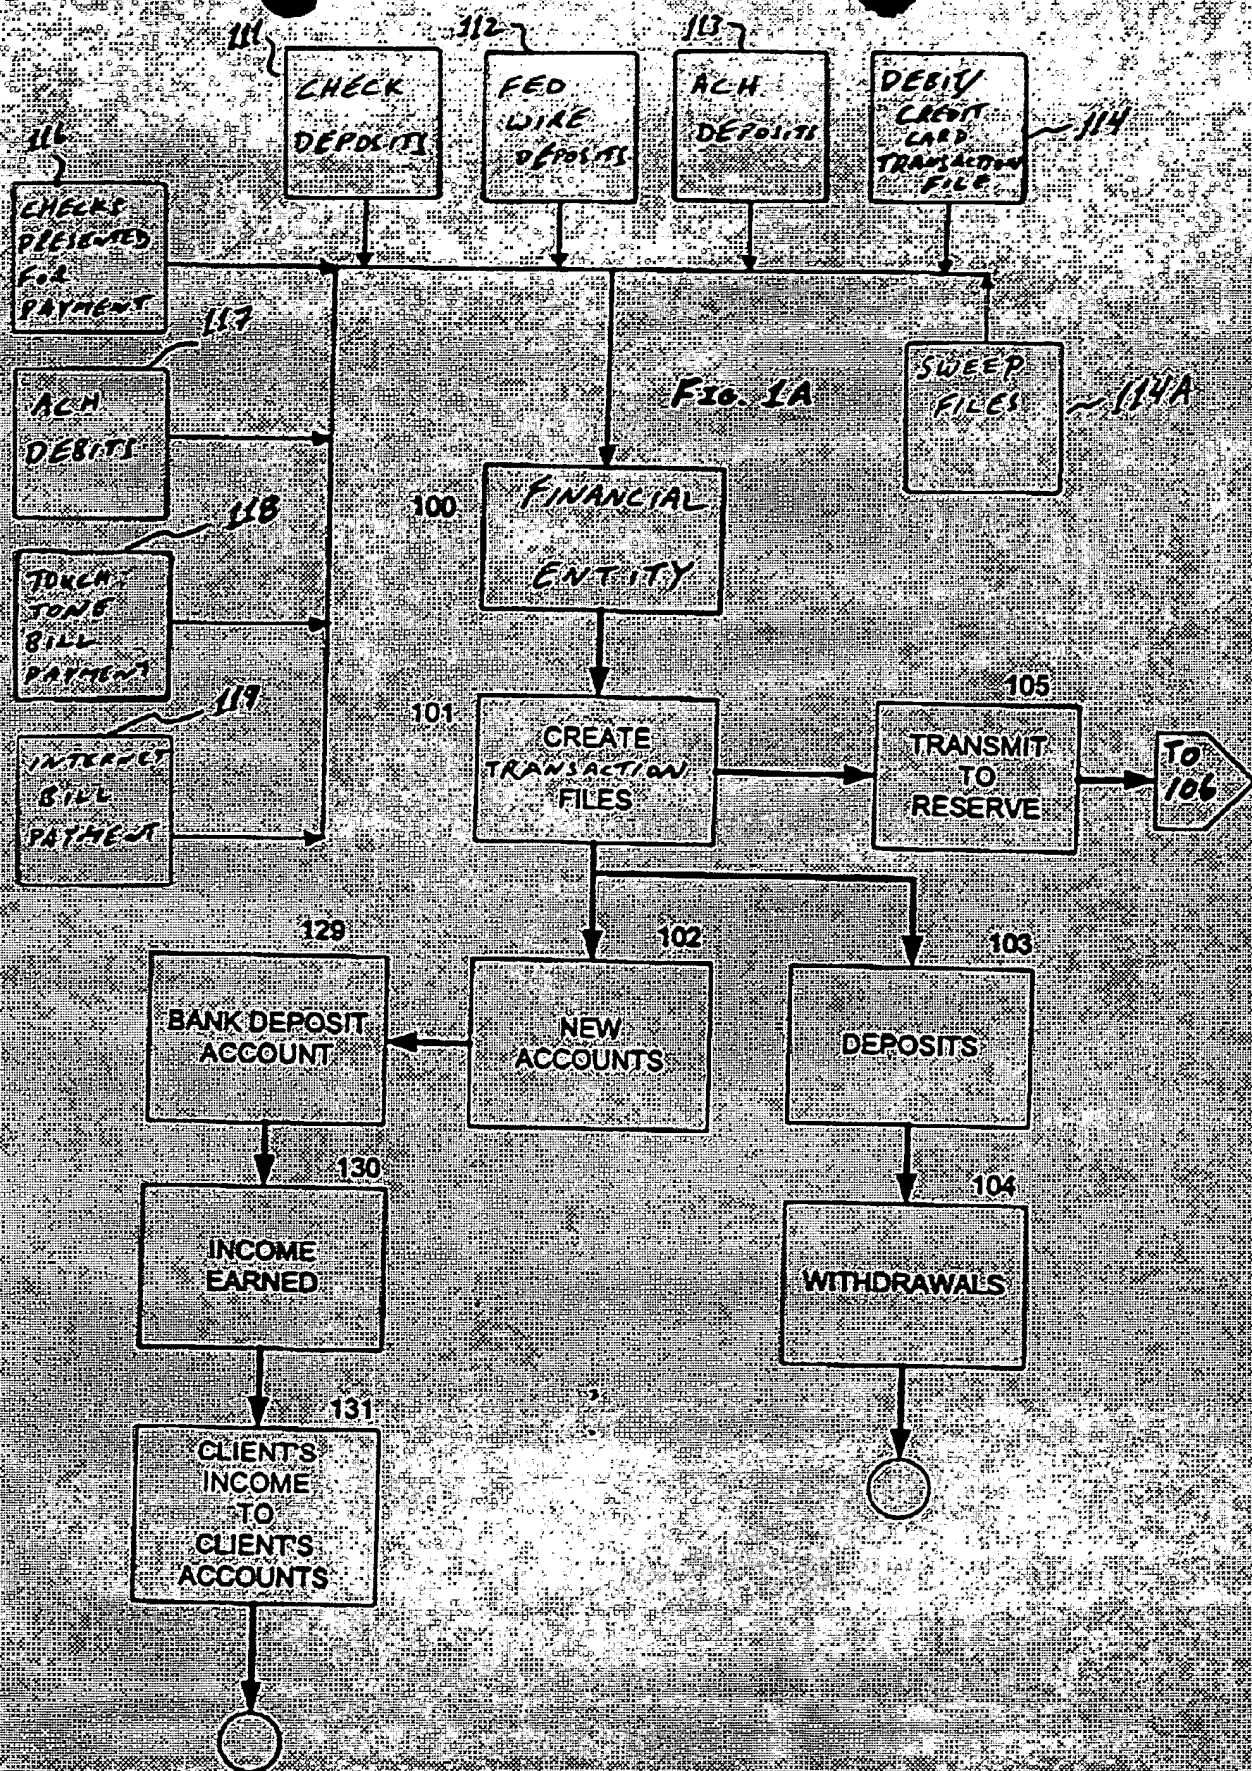 111
CHECK
DEPOSITS
112
FED
WIRE
DEPOSITS
113
ACH
DEPOSITS
DEBIT/
CREDIT
CARD
TRANSACTION
FILE
114
116
CHECKS
PRESENTED
FOR
PAYMENT
117
ACH
DEBITS
FIG. 1A
SWEEP
FILES
114A
100
FINANCIAL
ENTITY
118
TOUCH
TONE
BILL
PAYMENT
119
INTERNET
BILL
PAYMENT
101
CREATE
TRANSACTION
FILES
105
TRANSMIT
TO
RESERVE
TO
106
129
BANK DEPOSIT
ACCOUNT
102
NEW
ACCOUNTS
103
DEPOSITS
130
INCOME
EARNED
104
WITHDRAWALS
131
CLIENT'S
INCOME
TO
CLIENT'S
ACCOUNTS